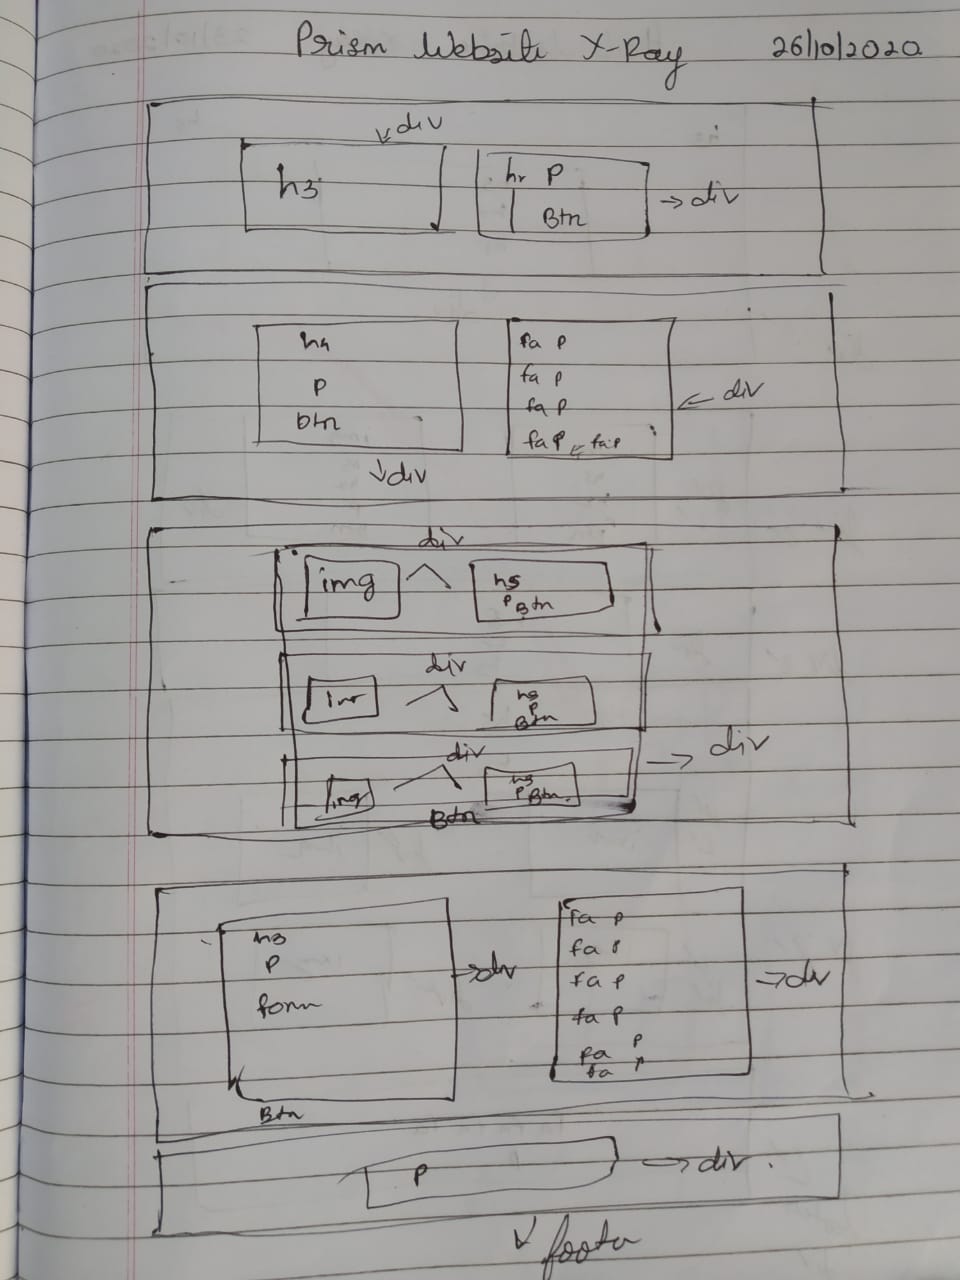 Prism Website X-Ray 26/10/2020
div
h3
hr P
Btn
div
h4
P
btn
div
fa P
fa P
fa P
fa P fa P
div
div
img
h5
P Btn
div
h5
P
Btn
div
img
h5
P Btn
Btn
div
h3
P
form
Btn
div
fa P
fa P
fa P
fa P
fa P
fa P
div
P
div
footer